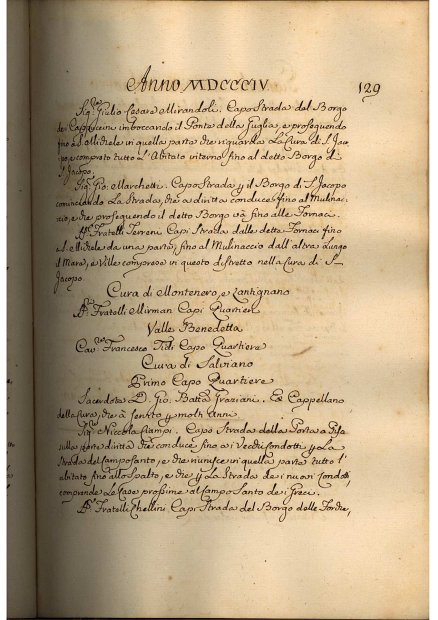 Anno MDCCCIV 129
Sig.r Giulio Cesare Mirandoli. Capo Strada del Borgo
de Cappuccini imboccando il Ponte della Puglia, e proseguendo
fino a S. Michele in quella parte che riguarda la Cura di S. Jac,,
,,po, e compreso tutto l'Abitato interno fino al detto Borgo di
S. Jacopo,
Sig.r Gio: Marchetti. Capo Strada p il Borgo di S. Jacopo
cominciando la Strada, che a diritto conduce fino al Mulinac,,
,,cio, e che proseguendo il detto Borgo và fino alle Fornaci.
Sig.ri Fratelli Terreni Capi Strada dalle dette Fornaci fino
a S. Michele da una parte, fino al Mulinaccio dall'altra Lungo
il Mare, e Ville comprese in questo distretto nella Cura di S.
Jacopo.
Cura di Montenero, e Antignano
Sig.ri Fratelli Mirman Capi Quartieri
Valle Benedetta
Cav.re Francesco Tidi Capo Quartiere
Cura di Salviano
Primo Capo Quartiere
Sacerdote D. Gio: Batta Graziani. Ex Cappellano
della Cura, che à servito p molti Anni.
Sig.r Niccola Ciampi. Capo Strada della Porta a Pisa
sulla parte diritta che conduce fino ai Vecchi Condotti p la
Strada del Camposanto, e che riunisce in quella parte tutto l'
abitato fino allo Spalto, e che p la Strada dei nuovi Condotti
comprende le Case prossime al Campo Santo dei Greci.
Sig.ri Fratelli Chellini Capi Strada del Borgo delle Forche,